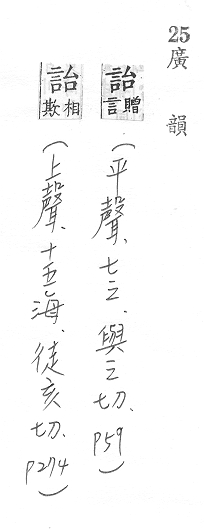 25廣韻
詒 贈言(平聲、七之、與之切、P59)
詒 相欺(上聲、十五海、徒亥切、P274)